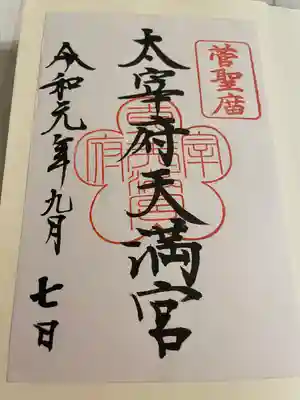 菅聖庿
太宰府天満宮
令和元年九月七日